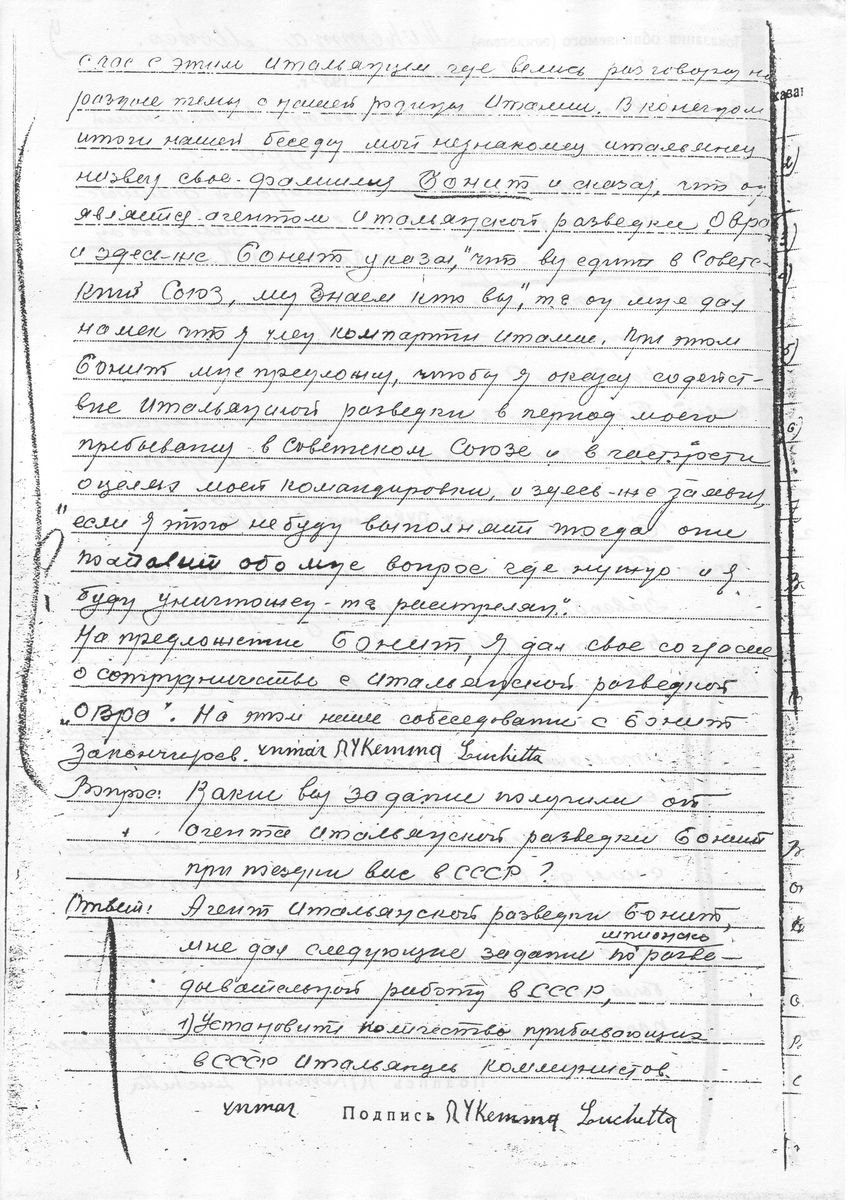 с час с этим итальянцем где велись разговоры на
разные темы с нашей родины Италии. В конечном
итоги нашей беседы мой незнакомец итальянец
назвал свое фамилия Бонит и сказал, что он
является агентом Итальянской разведки „Овра
и здесь-же Бонит указал, "что вы едите в Советс-
кий Союз, мы знаем кто вы", те он мне дал
намек что я член компартии Италии. При этом
Бонит мне предложил, чтобы я оказал содейст-
вие Итальянской разведки в период моего
пребывания в Советском Союзе и в частности
о целях моей командировки, и здесь-же заявил,
"если я этого не буду выполнять тогда они
поставит обо мне вопрос где нужно и я
буду уничтожен - те расстрелян".
На предложение Бонит, я дал свое согласие
о сотрудничестве с Итальянской разведкой
„Овра". На этом наше собеседование с Бонит
закончилось. читал Лукетта Luchetta
Вопрос: Какие вы задание получили от
агента Итальянской разведки Бонит
при поездки вас в СССР?
Ответ: Агент Итальянской разведки Бонит,
шпионско
мне дал следующие задание по разве-
дывательной работы в СССР,
1) Установить количество прибывающих
в СССР Итальянцев коммунистов
читал Подпись Лукетта Luchetta